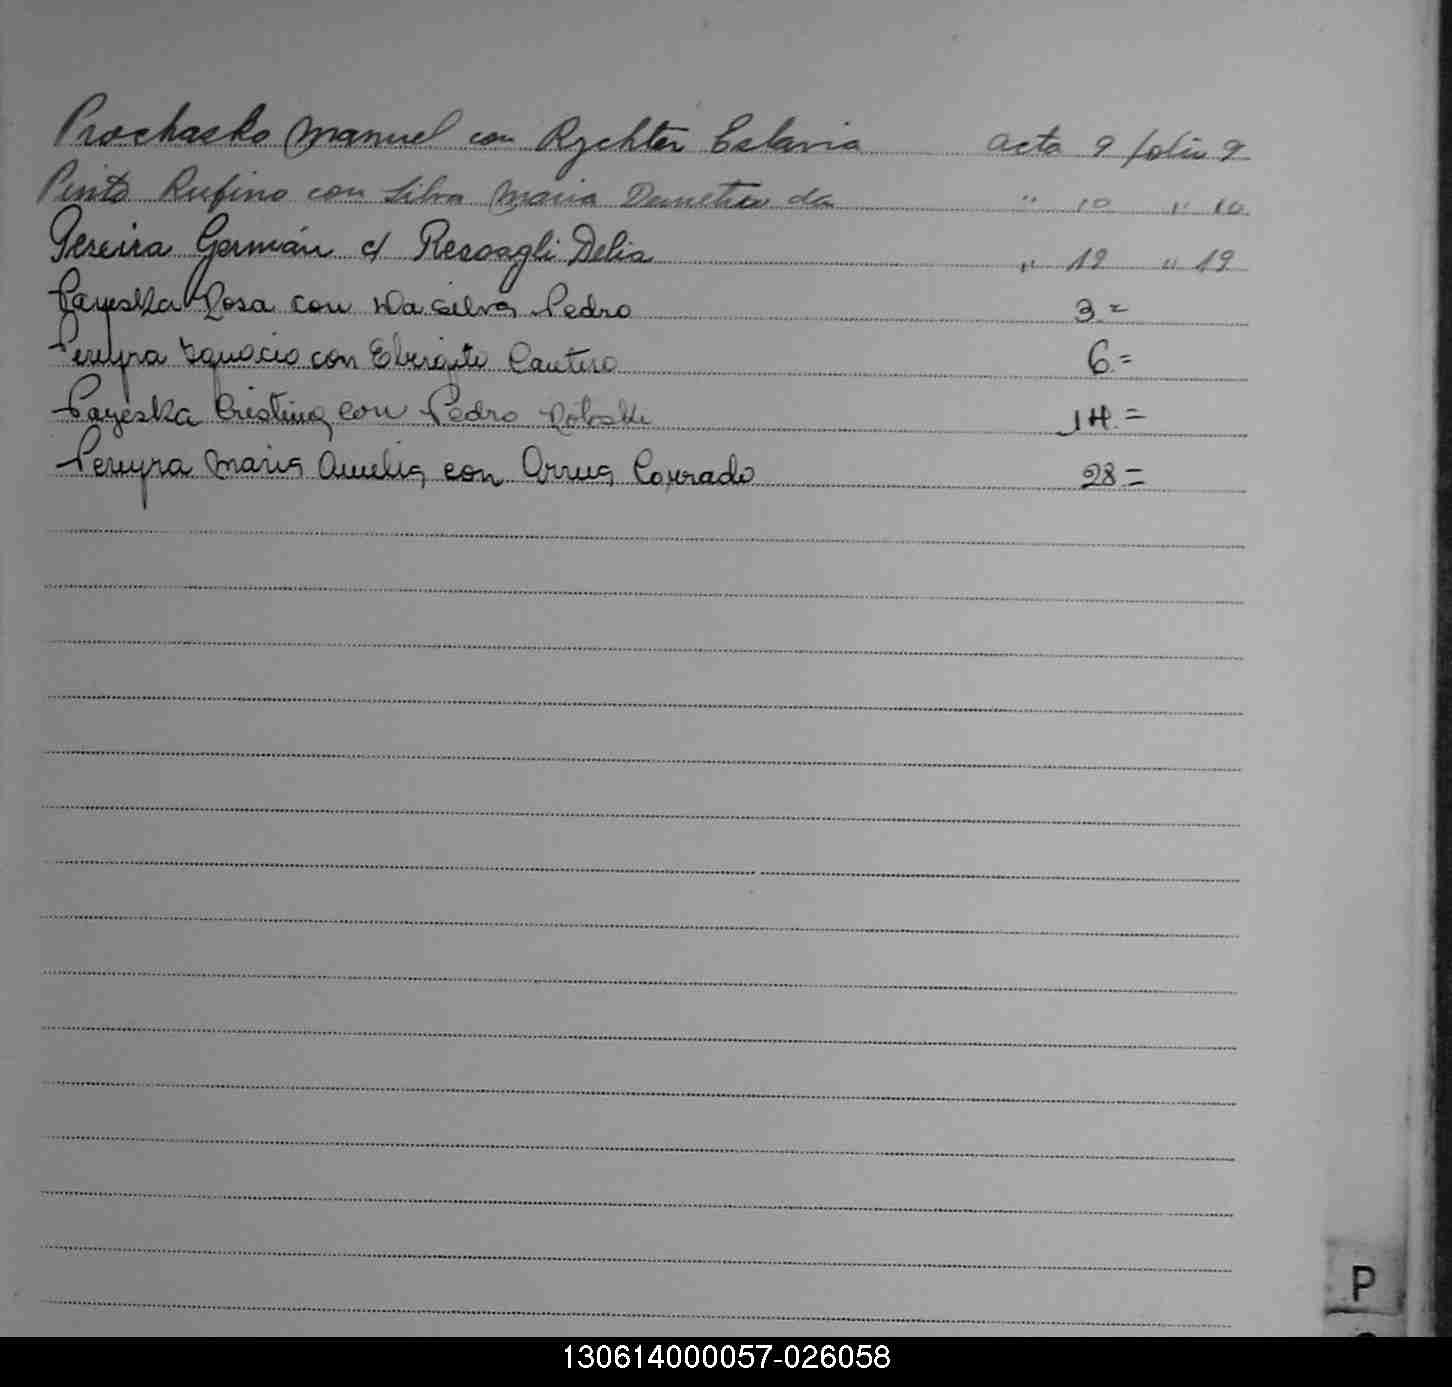 Prochasko Manuel con Rychter Eslavia acta 9 folio 9
Pinto Rufino con Silva Maria Demetria da " 10 " 10
Pereira Germán c/ Resoagli Delia " 19 " 19
Payeska Rosa con Da Silva Pedro 3=
Pereyra Ignacio con Cantero 6=
Payeska Cristina con Pedro 14=
Pereyra Maria Amelia con Conrado 28=
P
130614000057-026058